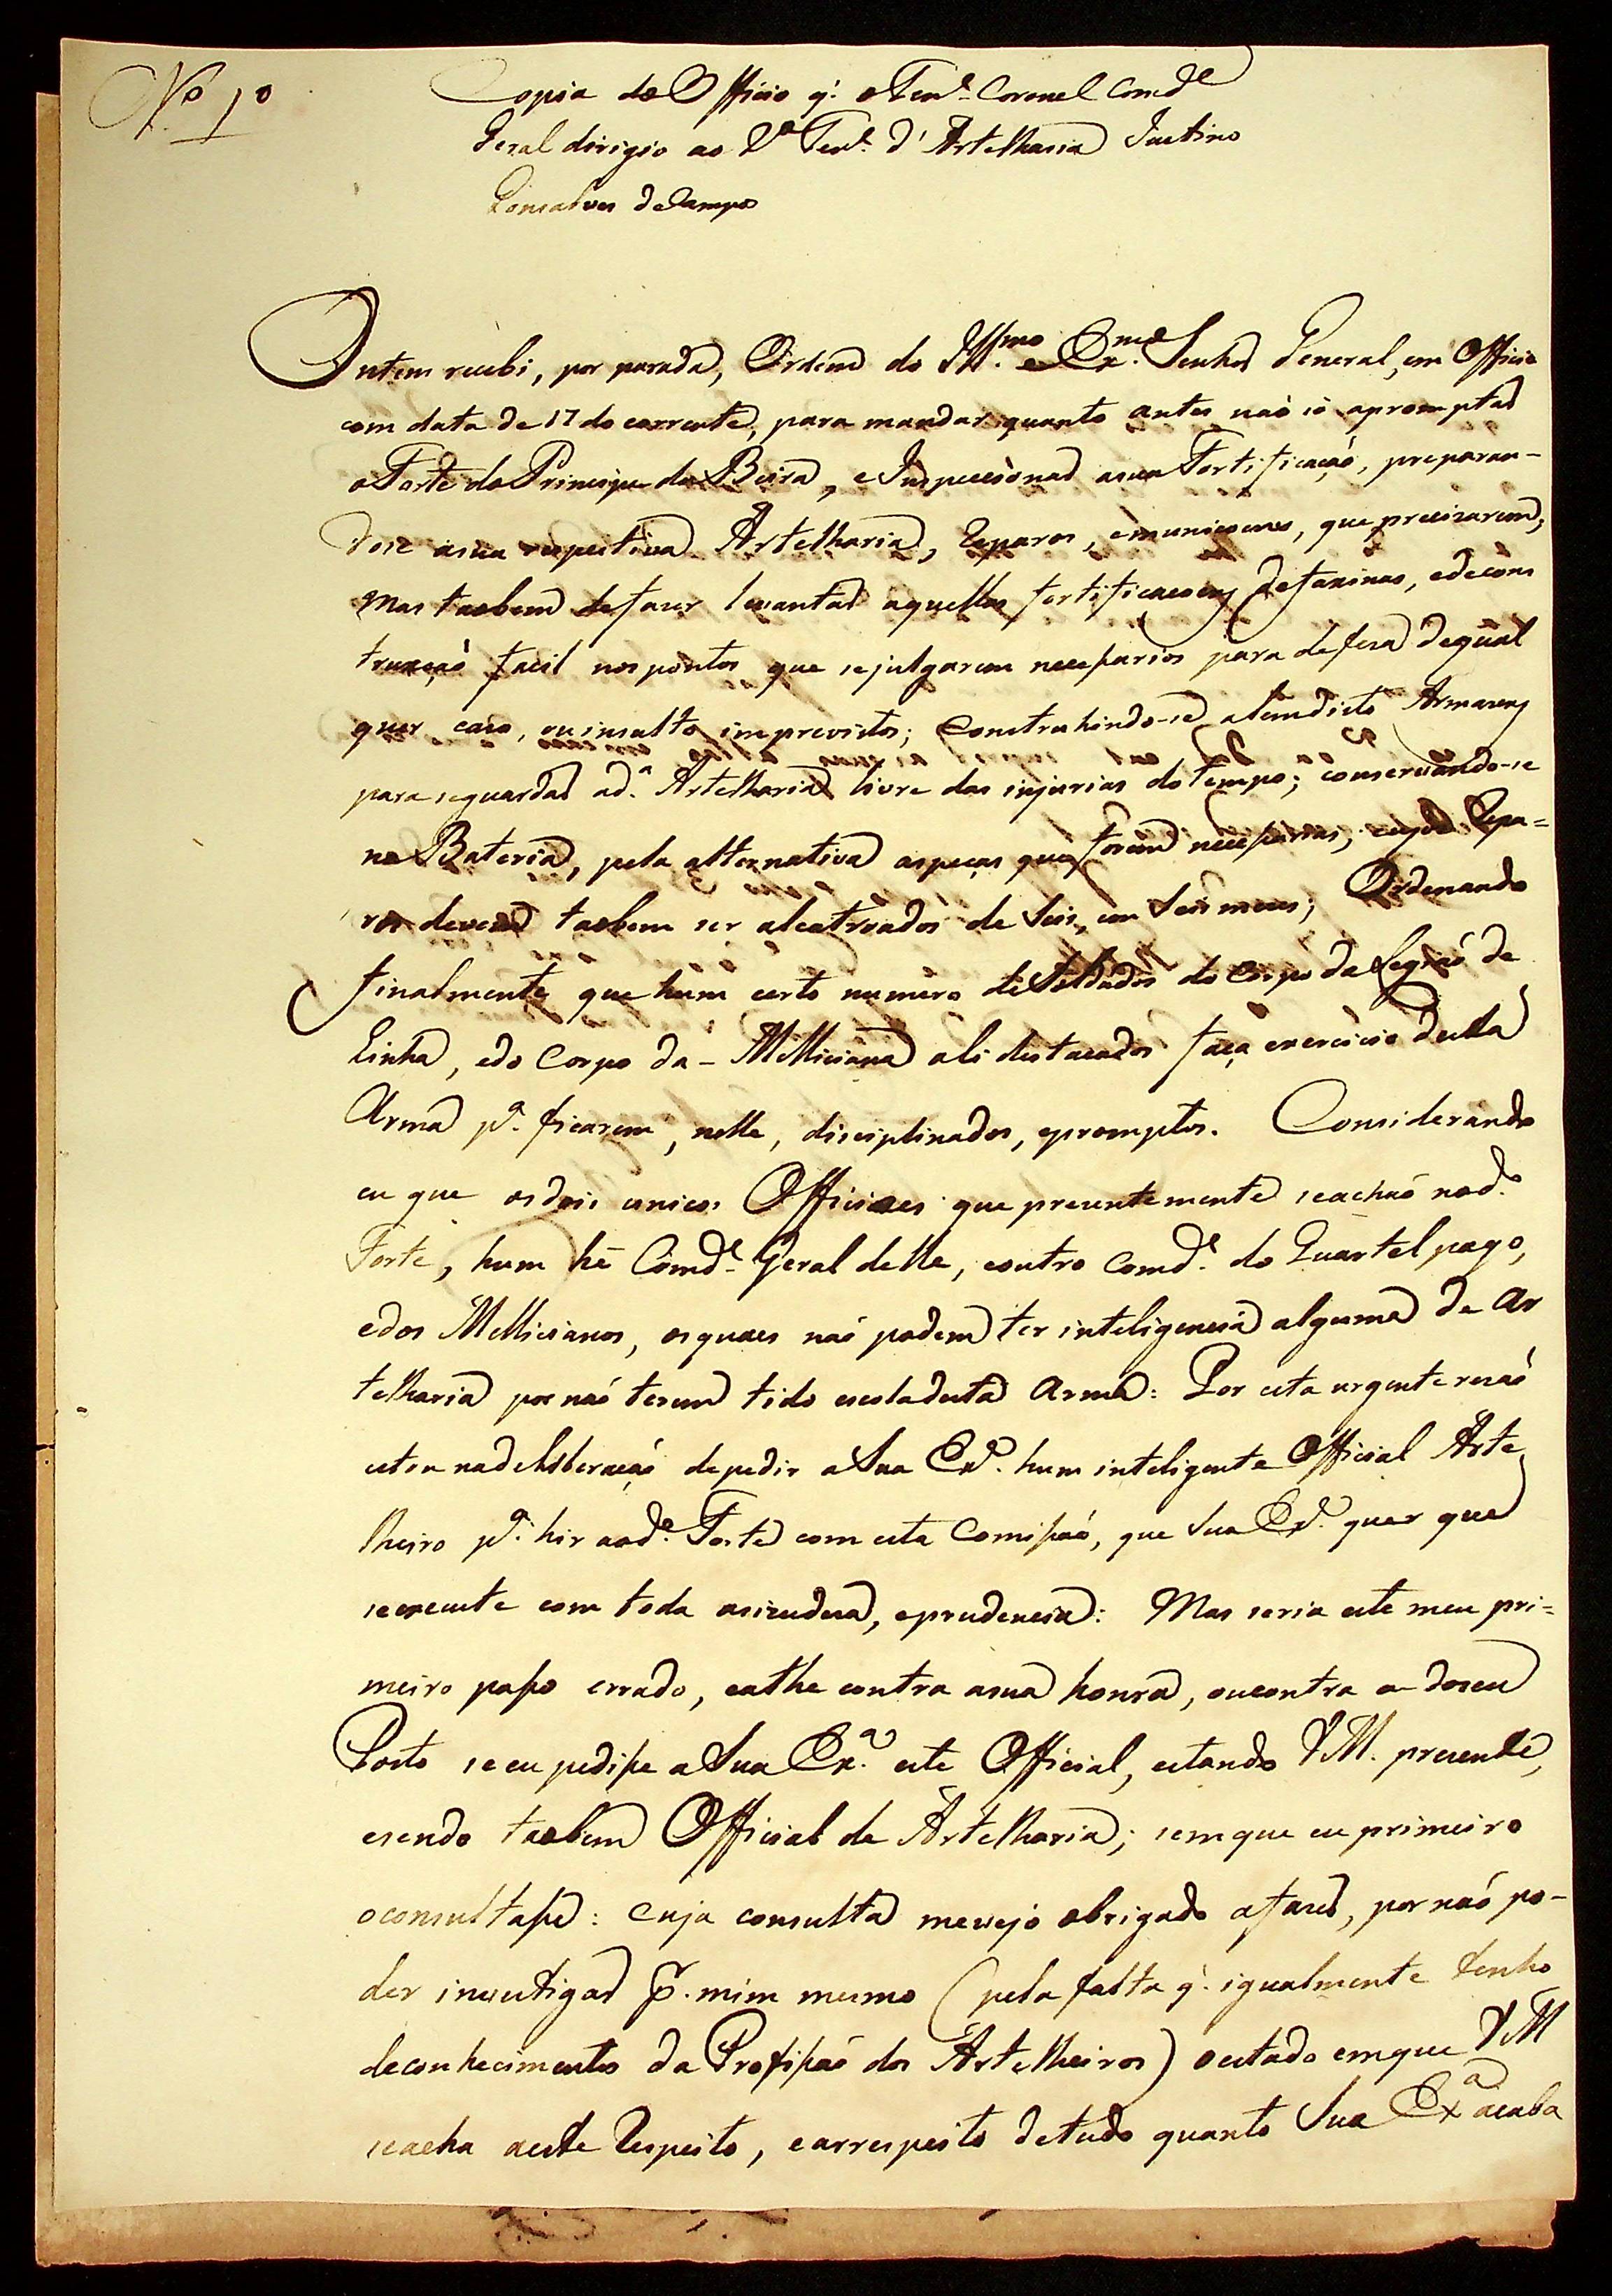 Nº 1º
Copia do Officio q̃. o Tenᵉ. Coronel Comdᵉ
Geral dirigio ao 2º Tenᵉ. d'Artelharia Justino
Gonsalves de Campos
Ontem recebi, por parada, Ordem do Illᵐᵒ. e Exᵐᵒ. Senhor General, em Officio
com data de 17 do corrente, para mandar quanto antes naõ só apromptar
o Forte do Principe da Beira, e Inspecsionar asua Fortificaçaõ, preparan-
dose asua respectiva Artelharia, Reparos, emunicoens, que precizarem;
Mas taobem defazer levantar aquellas fortificacoens defaxinas, edecons
trucçaõ facil nos pontos que sejulgarem necessarios para defeza dequal
quer cazo, ou insulto imprevistos; Construhindo-se alemdisto Armazens
para seguardar adᵃ. Artelharia livre das injurias do tempo; conservando-se
na Bateria, pela alternativa aspeças que forem necessarias; cujos Repa=
ros devem taobem ser alcatroados de Seis, em Seis mezes; Ordenando
finalmente que hum certo numero de Soldados do Corpo da Legiaõ de
Linha, edo Corpo da - Melliciana ali destacados faça exercicio desta
Arma pᵃ. ficarem, nelle, disciplinados, epromptos. Considerando
eu que osdois unicos Officiaes que prezentemente seachaõ nodº.
Forte, hum hé Comdᵉ. Geral delle, eoutro Comdᵉ. do Quartel pago,
edos Mellicianos, osquaes naõ podem ter inteligencia alguma de Ar
telharia por naõ terem tido escoladesta Arma: Por esta urgente rezaõ
estou nadeliberaçaõ depedir a Sua Exᵃ. hum inteligente Official Arte
lheiro pᵃ. hir aodº. Forte com esta Comissaõ, que Sua Exᵃ. quer que
seexecute com toda asizudeza, eprudencia: Mas seria este meu pri=
meiro passo errado, eathe contra asua honra, oucontra a doseu
Posto se eu pedisse a Sua Exᵃ. este Official, estando VM. prezente,
esendo taobem Official de Artelharia; semque eu primeiro
oconsultasse: Cuja consulta mevejo obrigado afazer, por naõ po-
der investigar p̃. mim mesmo (pela falta q̃. igualmente tenho
deconhecimentos da Profissaõ dos Artelheiros) oestado emque VM
seacha aeste Respeito, earrespeito detudo quanto Sua Exᵃ acaba